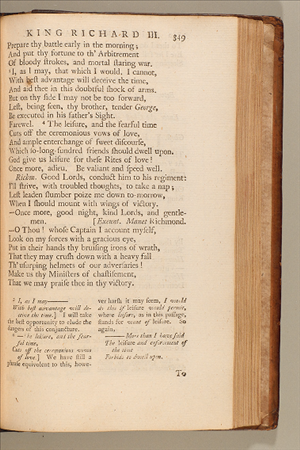 KING RICHARD III. 349
Prepare thy battle early in the morning;
And put thy fortune to th' Arbitrement
Of bloody strokes, and mortal staring war.
³I, as I may, that which I would, I cannot,
With best advantage will deceive the time,
And aid thee in this doubtful shock of arms.
But on thy side I may not be too forward,
Lest, being seen, thy brother, tender George,
Be executed in his father's Sight.
Farewel. ⁴ The leisure, and the fearful time
Cuts off the ceremonious vows of love,
And ample enterchange of sweet discourse,
Which so-long-sundred friends should dwell upon.
God give us leisure for these Rites of love!
Once more, adieu. Be valiant and speed well.
Richm. Good Lords, conduct him to his regiment:
I'll strive, with troubled thoughts, to take a nap;
Lest leaden slumber poize me down to-morrow,
When I should mount with wings of victory.
—Once more, good night, kind Lords, and gentle-
men. [Exeunt. Manet Richmond.
—O Thou! whose Captain I account myself,
Look on my forces with a gracious eye,
Put in their hands thy bruising irons of wrath,
That they may crush down with a heavy fall
Th' usurping helmets of our adversaries!
Make us thy Ministers of chastisement,
That we may praise thee in thy victory.
³ I, as I may——
With best advantage will de-
ceive the time.] I will take
the best opportunity to elude the
dangers of this conjuncture.
⁴ —The leisure, and the fear-
ful time,
Cuts off the ceremonious vows
of love] We have still a
phrase equivalent to this, how-
ever harsh it may seem, I would
do this if leisure would permit,
where leisure, as in this passage,
stands for want of leisure. So
again,
——More than I have said
The leisure and enforcement of
the time
Forbids to dwell upon.
To